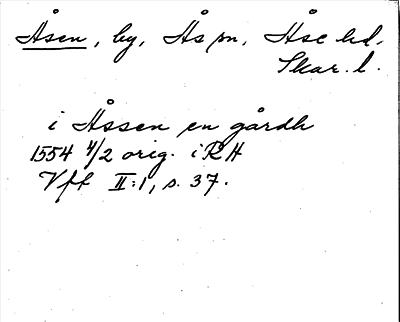 Åsen, by, Ås sn, Åse hd.
Skar. l.
i Åssen en gårdh
1554 4/2 orig. i RH
Vff II:1, s. 37.